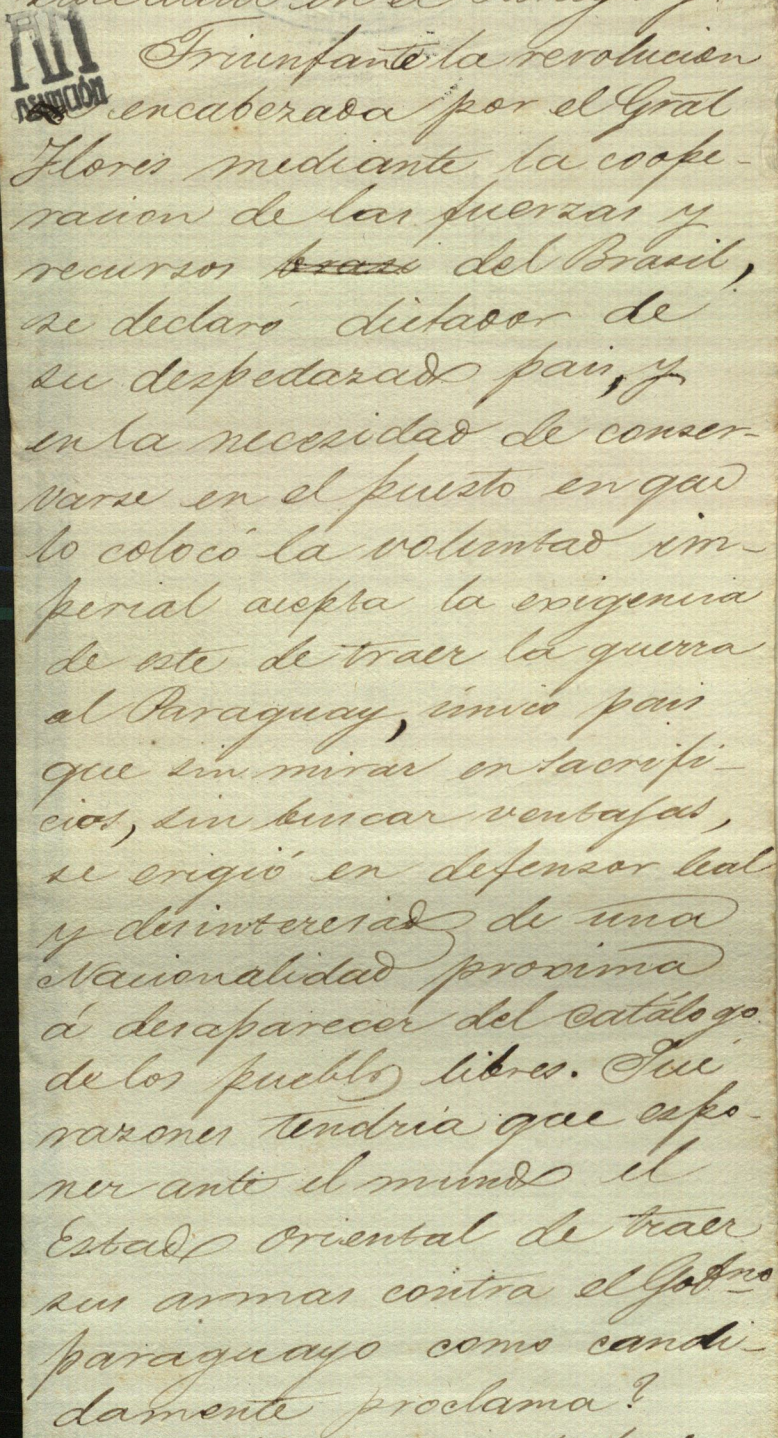 AN
ASUNCIÓN
Triunfante la revolucion
encabezada por el Gral
Flores mediante la coope-
racion de las fuerzas y
recursos brasi del Brasil,
se declaró dictador de
su despedazado pais, y
en la necesidad de conser-
varse en el puesto en que
lo colocó la voluntad im-
perial acepta la exigencia
de este de traer la guerra
al Paraguay, único pais
que sin mirar en sacrifi-
cios, sin buscar ventajas,
se erigió en defensor leal
y desinteresado de una
Nacionalidad proxima
á desaparecer del catálogo
de los pueblos libres. Qué
razones tendria que espo-
ner ante el mundo el
Estado Oriental de traer
sus armas contra el Gobno
paraguayo como candi-
damente proclama?